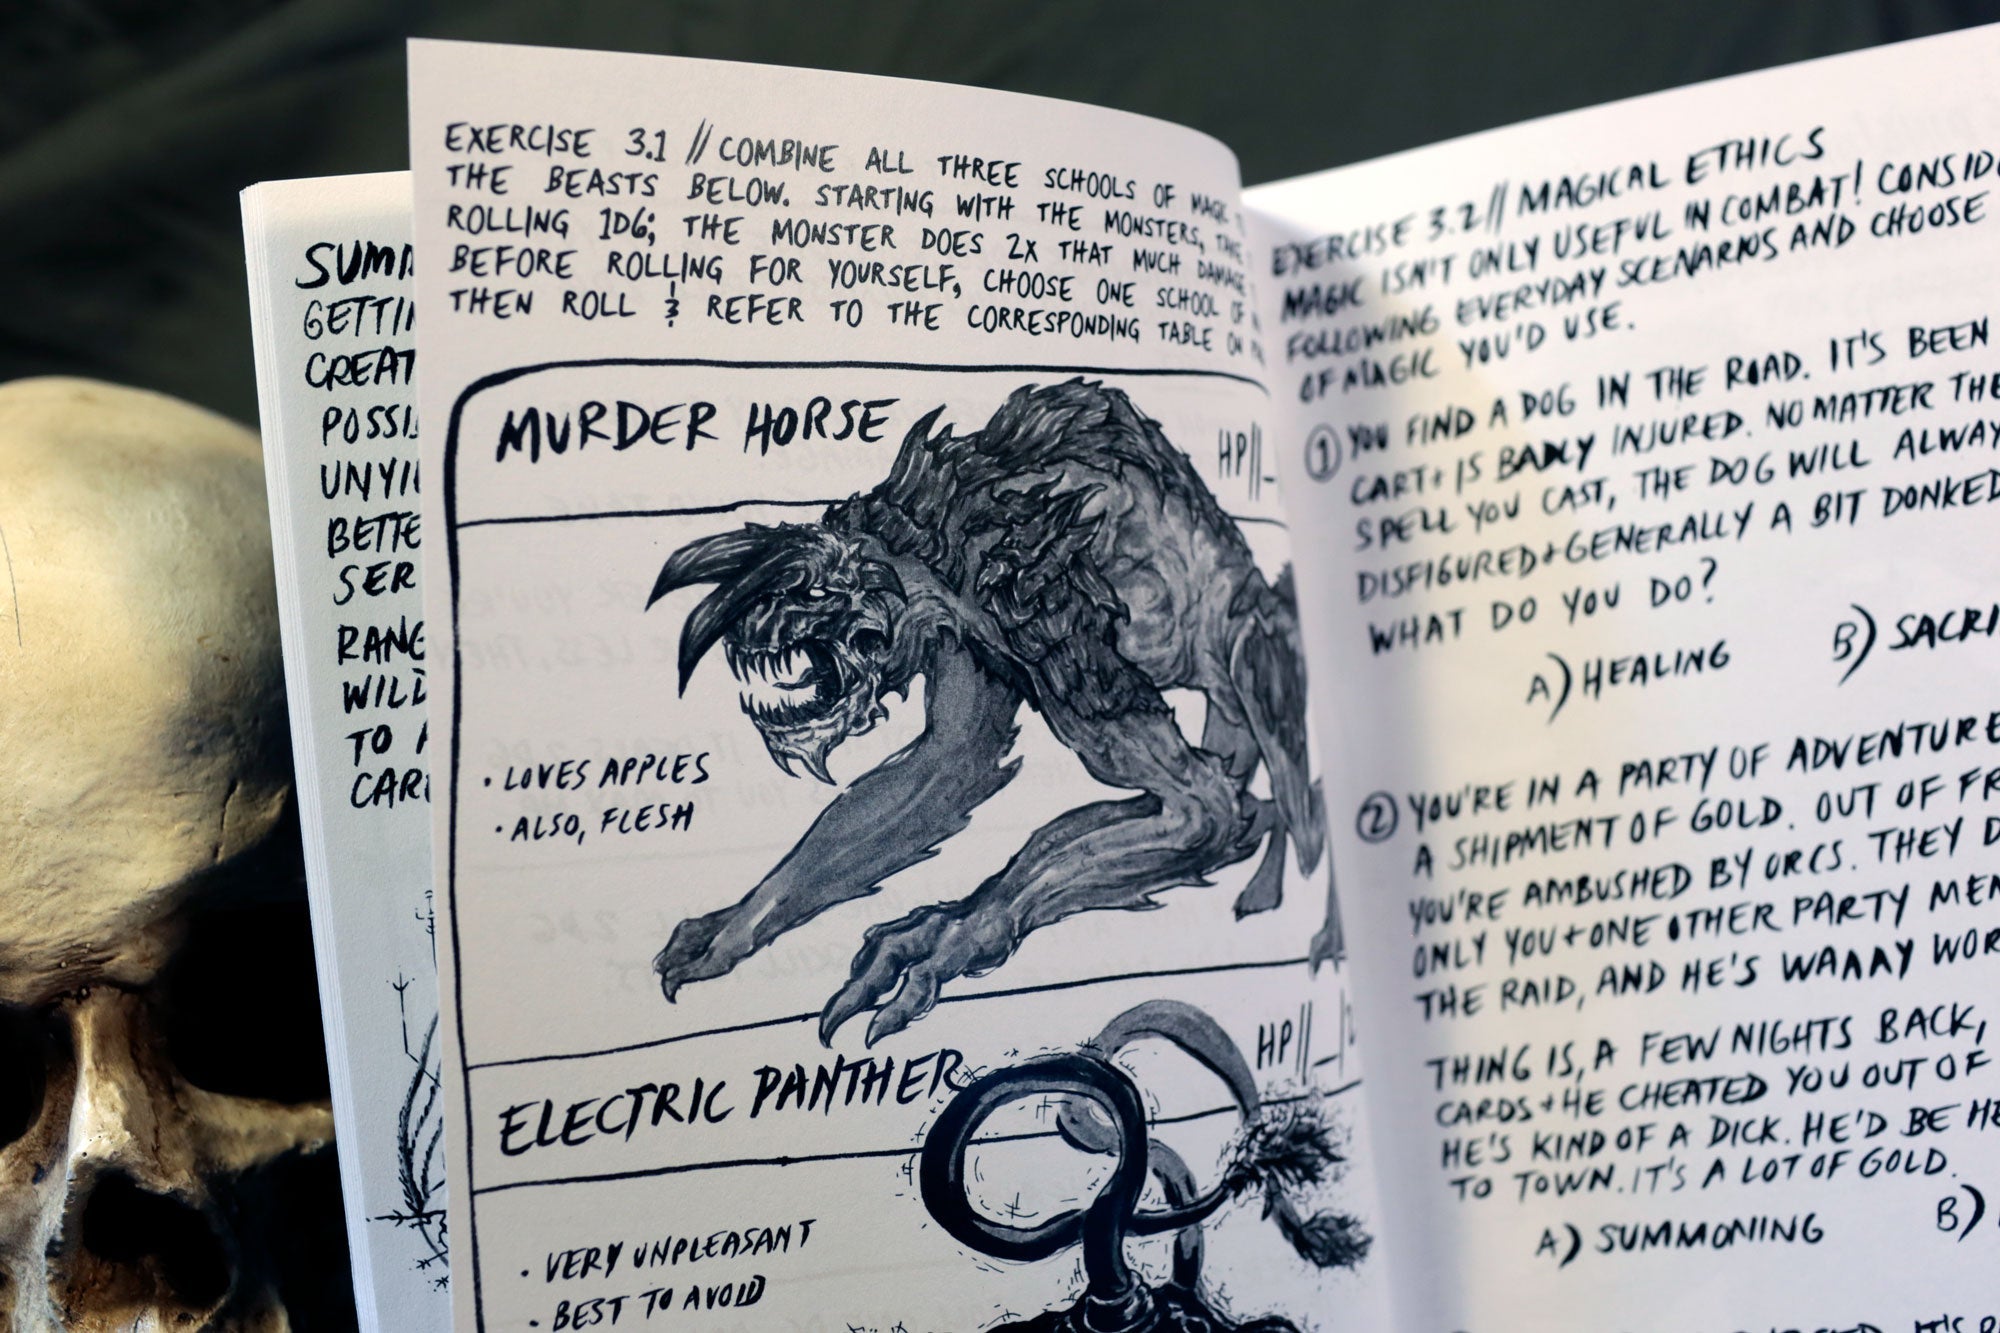 SUM
GETTI
CREAT
POSSI
UNYI
BETTE
SER
RANG
WILD
TO
CAR
EXERCISE 3.1 // COMBINE ALL THREE SCHOOLS OF MAGIC
THE BEASTS BELOW. STARTING WITH THE MONSTERS,
ROLLING 1D6; THE MONSTER DOES 2X THAT MUCH DAMAGE
BEFORE ROLLING FOR YOURSELF, CHOOSE ONE SCHOOL OF
THEN ROLL & REFER TO THE CORRESPONDING TABLE ON
MURDER HORSE HP||_
• LOVES APPLES
• ALSO, FLESH
ELECTRIC PANTHER HP||_|
• VERY UNPLEASANT
• BEST TO AVOID
EXERCISE 3.2 // MAGICAL ETHICS
MAGIC ISN'T ONLY USEFUL IN COMBAT! CONSID
FOLLOWING EVERYDAY SCENARIOS AND CHOOSE
OF MAGIC YOU'D USE.
① YOU FIND A DOG IN THE ROAD. IT'S BEEN
CART + IS BADLY INJURED. NO MATTER THE
SPELL YOU CAST, THE DOG WILL ALWAY
DISFIGURED + GENERALLY A BIT DONKED
WHAT DO YOU DO?
A) HEALING B) SACRI
② YOU'RE IN A PARTY OF ADVENTURE
A SHIPMENT OF GOLD. OUT OF FR
YOU'RE AMBUSHED BY ORCS. THEY D
ONLY YOU + ONE OTHER PARTY MEM
THE RAID, AND HE'S WAAAY WOR
THING IS, A FEW NIGHTS BACK,
CARDS + HE CHEATED YOU OUT OF
HE'S KIND OF A DICK. HE'D BE HE
TO TOWN. IT'S A LOT OF GOLD.
A) SUMMONING B)